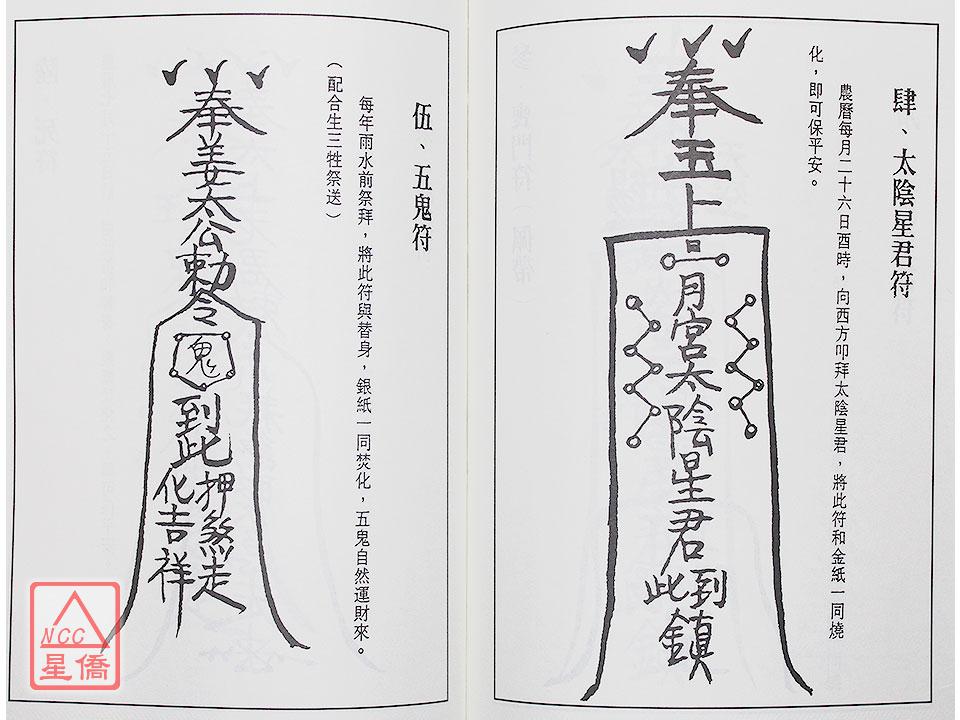 肆、太陰星君符
農曆每月二十六日酉時，向西方叩拜太陰星君，將此符和金紙一同燒
化，即可保平安。
奉玉上
月宮太陰星君到此鎮
伍、五鬼符
每年雨水前祭拜，將此符與替身，銀紙一同焚化，五鬼自然運財來。
（配合生三牲祭送）
奉姜太公勅令
鬼
到此
押煞走
化吉祥
NCC
星僑